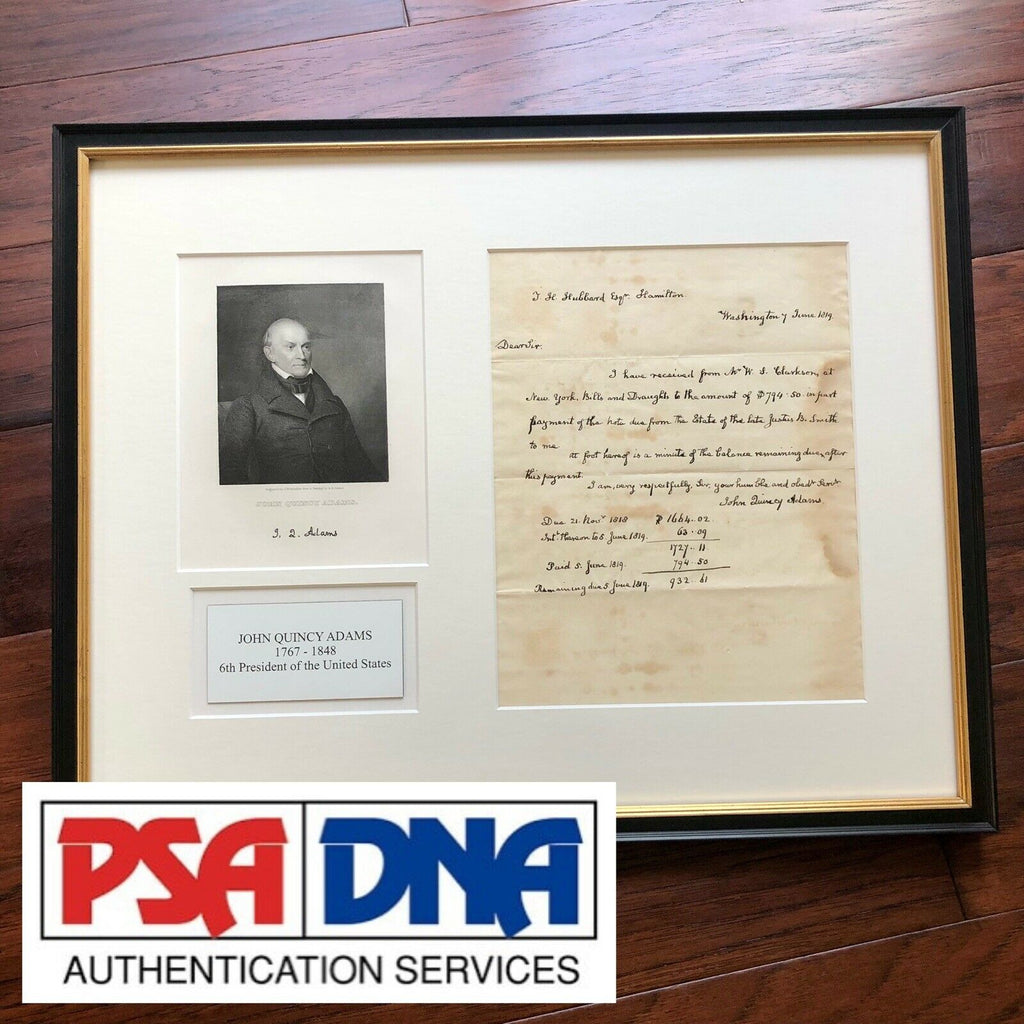 JOHN QUINCY ADAMS.
J. Q. Adams
JOHN QUINCY ADAMS
1767 - 1848
6th President of the United States
T. H. Hubbard Esqr. Hamilton
Washington 7 June 1819
Dear Sir.
I have received from Mr W. S. Clarkson, at
New York, Bills and Draughts to the amount of $794.50 in part
payment of the note due from the Estate of the late Justus B. Smith
to me
at foot hereof is a minute of the balance remaining due, after
this payment.
I am, very respectfully Sir, your humble and obedt Servt
John Quincy Adams.
Due 21. Novr 1818 $ 1664..02
Intt thereon to 5 June 1819. 63..09
1727..11
Paid 5. June 1819. 794..50
Remaining due 5 June 1819. 932..61
PSA DNA
AUTHENTICATION SERVICES